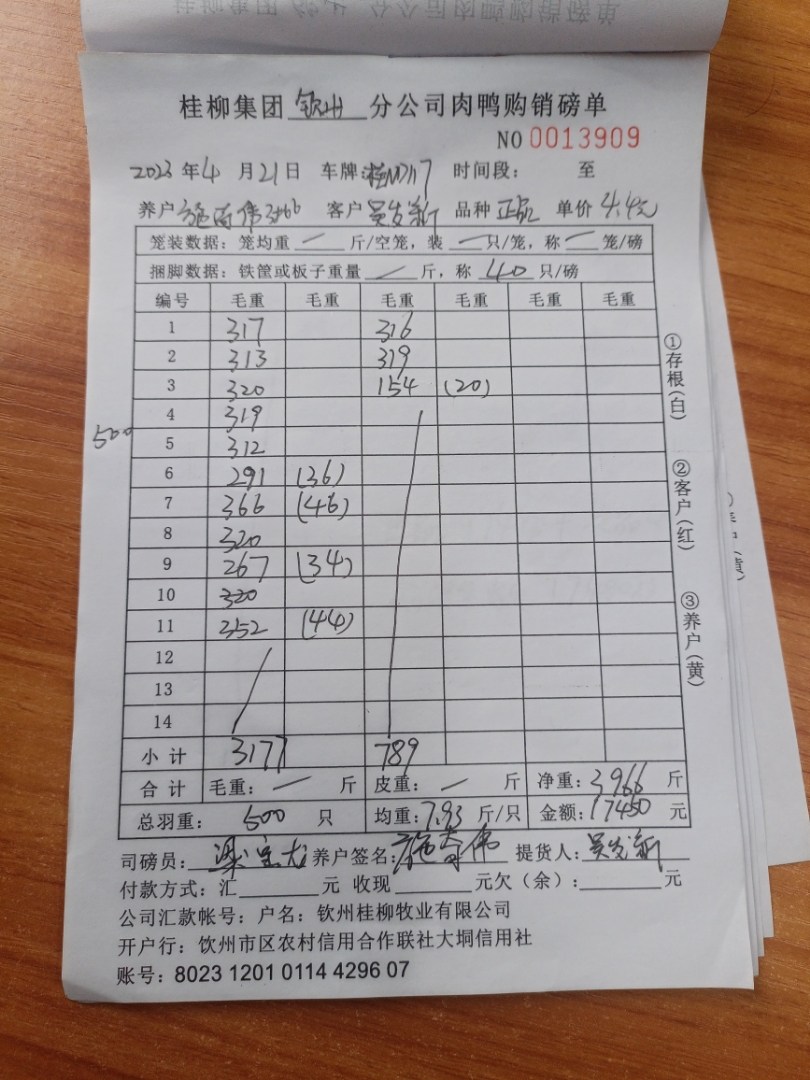 桂柳集团 钦州 分公司肉鸭购销磅单
NO 0013909
2023 年 4 月 21 日 车牌: 时间段: 至
养户 施 伟 客户 吴发新 品种 正品 单价 4.4元
笼装数据: 笼均重 — 斤/空笼, 装 — 只/笼, 称 — 笼/磅
捆脚数据: 铁筐或板子重量 — 斤, 称 40 只/磅
编号 毛重 毛重 毛重 毛重 毛重 毛重
1 317 316
2 313 319
3 320 154 (20)
4 319
500
5 312
6 291 (36)
7 366 (46)
8 320
9 267 (34)
10 320
11 352 (44)
12
13
14
小计 3177 789
合计 毛重: — 斤 皮重: — 斤 净重: 3966 斤
总羽重: 500 只 均重: 7.93 斤/只 金额: 17450 元
司磅员: 梁 龙 养户签名: 施 伟 提货人: 吴发新
付款方式: 汇 元 收现 元欠(余): 元
公司汇款帐号: 户名: 钦州桂柳牧业有限公司
开户行: 钦州市区农村信用合作联社大垌信用社
账号: 8023 1201 0114 4296 07
①存根(白)
②客户(红)
③养户(黄)